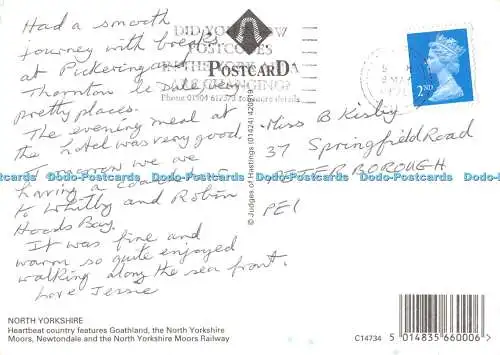 Had a smooth
journey with breaks
at Pickering and
Thornton le Dale very
pretty places.
The evening meal at
the hotel was very good.
we are
having a
to Whitby and Robin
Hoods Bay.
It was fine and
warm so quite enjoyed
walking along the sea front.
Love Jessie
NORTH YORKSHIRE
Heartbeat country features Goathland, the North Yorkshire
Moors, Newtondale and the North Yorkshire Moors Railway
DID YOU KNOW
POSTCODES
IN THE YORK AREA
ARE CHANGING?
Phone 01904 for more details
POSTCARD
© Judges of Hastings (01424) 420919
2ND
Miss B Kirby
37 Springfield Road
PETERBOROUGH
PE1
C14734
5 014835 660006
Dodo-Postcards Dodo-Postcards Dodo-Postcards Dodo-Postcards Dodo-Postcards